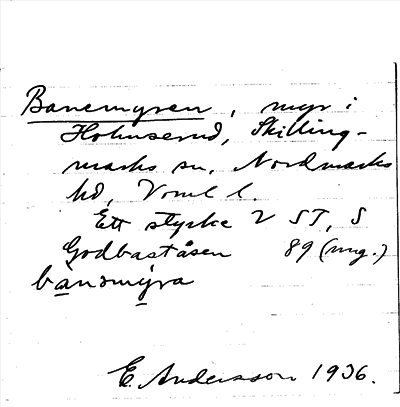 Banemyren, myr i
Holmserud, Skilling-
marks sn, Nordmarks
hd, Vrml l.
Ett stycke V ST, S
Godbaståsen 89 (mg.)
bànəmỳra
E. Andersson 1936.